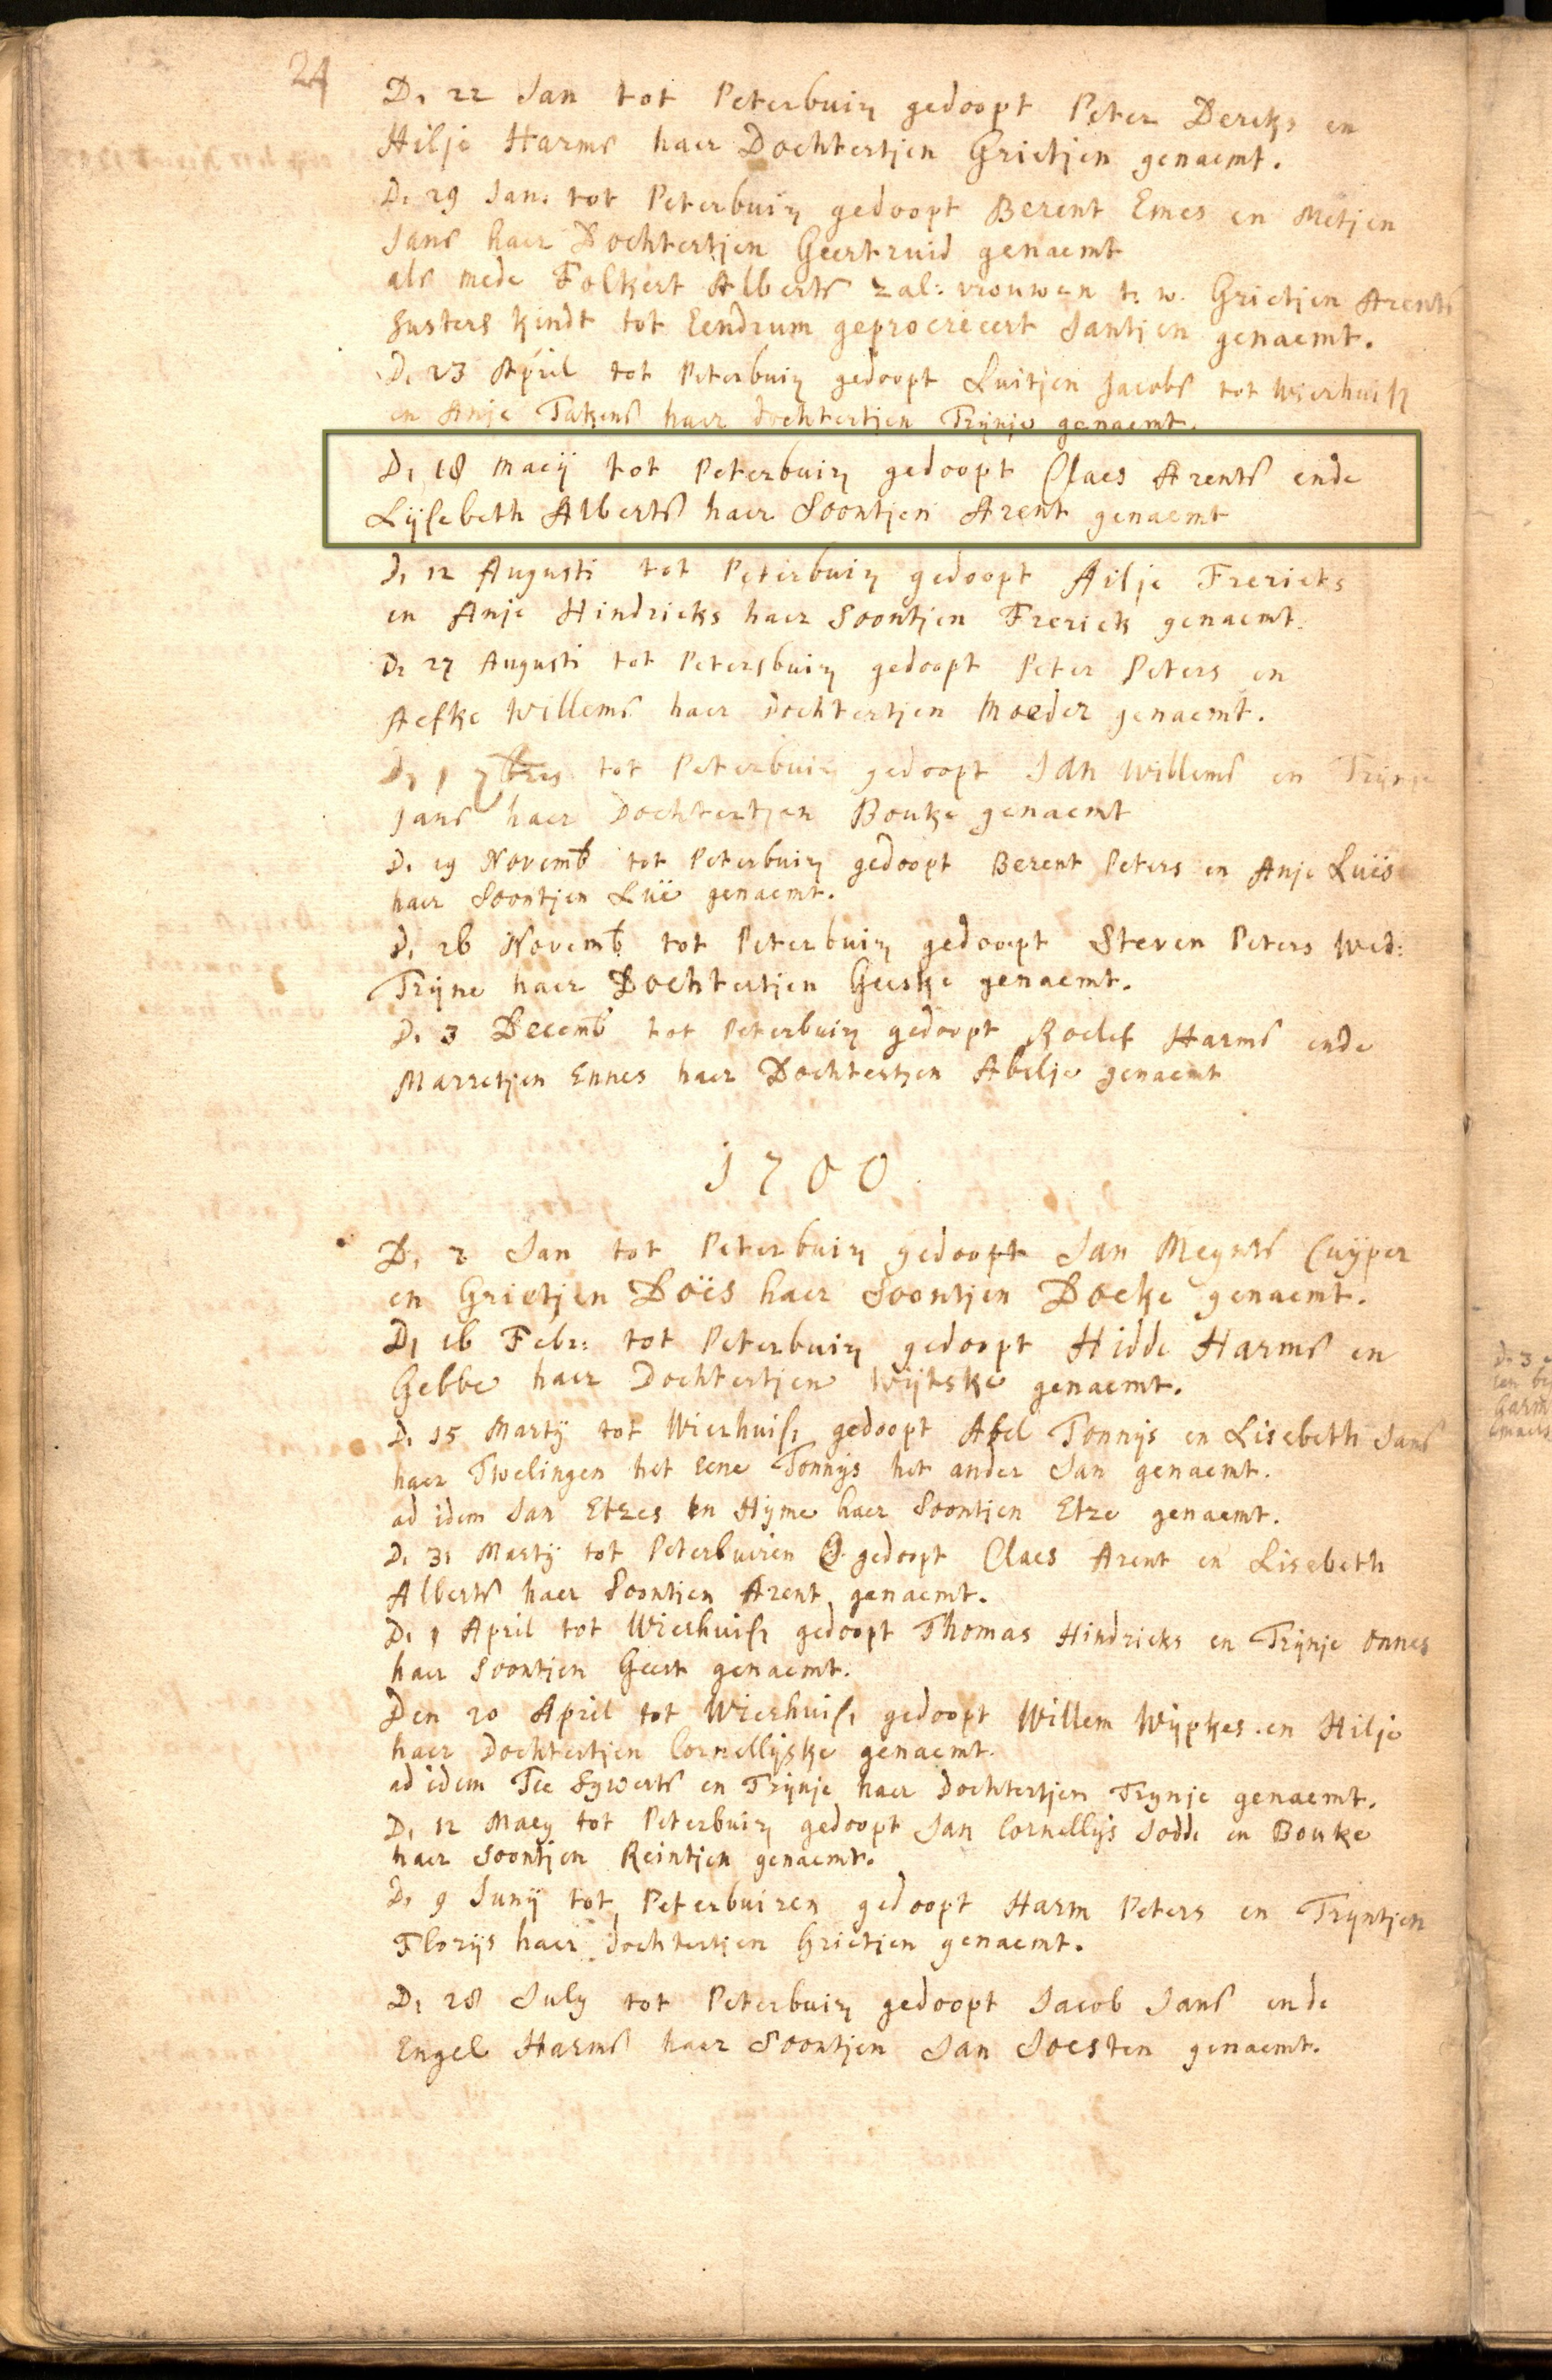 24
D. 22 Jan tot Peterbuir gedoopt Peter Dercks en
Hilje Harms haer Dochtertjen Grietjen genaemt.
D. 29 Jan. tot Peterbuir gedoopt Berent Emes en Metjen
Jans haer Dochtertjen Geertruid genaemt
als mede Folkert Alberts zal: vrouwen t. w. Grietjen Arents
susters kindt tot Eendrum geprocreëert Jantjen genaemt.
D. 23 April tot Peterbuir gedoopt Luitjen Jacobs tot Wierhuis
en Anje Takens haer dochtertjen Trijnje genaemt.
D. 18 Maeij tot Peterbuir gedoopt Claes Arents ende
Lijsebeth Alberts haer Soontjen Arent genaemt
D. 12 Augusti tot Peterbuir gedoopt Ailje Frericks
en Anje Hindricks haer Soontjen Frerick genaemt.
D. 27 Augusti tot Petersbuir gedoopt Peter Peters en
Aefke Willems haer dochtertjen Moeder genaemt.
D. 1 7bres tot Peterbuir gedoopt Jan Willems en Trijnje
Jans haer Dochtertjen Bouke genaemt
D. 19 Novemb tot Peterbuir gedoopt Berent Peters en Anje Luïs
haer Soontjen Luë genaemt.
D. 26 Novemb tot Peterbuir gedoopt Steven Peters Wed:
Trijne haer Dochtertjen Geeske genaemt.
D. 3 Decemb tot Peterbuir gedoopt Roelef Harms ende
Marretjen Ennes haer Dochtertjen Abelje genaemt
1700
D. 2 Jan tot Peterbuir gedoopt Jan Meyns Cuijper
en Grietjen Doës haer Soontjen Doeke genaemt.
D. 16 Febr: tot Peterbuir gedoopt Hidde Harms en
Gebbe haer Dochtertjen Wijtske genaemt.
D. 15 Martij tot Wierhuis gedoopt Abel Tonnijs en Lisebeth Jans
haer Twelingen het eene Tonnijs het ander Jan genaemt.
ad idem Jan Etzes en Hijme haer Soontjen Etze genaemt.
D. 31 Martij tot Peterbuiren gedoopt Claes Arent en Lisebeth
Alberts haer Soontjen Arent genaemt.
D. 1 April tot Wierhuis gedoopt Thomas Hindricks en Trijnje Onnes
haer Soontjen Geert genaemt.
Den 20 April tot Wierhuis gedoopt Willem Wijpkes en Hilje
haer Dochtertjen Cornellijske genaemt.
ad idem Tee Sywerts en Trijnje haer Dochtertjen Trynje genaemt.
D. 12 Maey tot Peterbuir gedoopt Jan Cornellijs Jodde en Bouke
haer Soontjen Reintjen genaemt.
D. 9 Junij tot Peterbuiren gedoopt Harm Peters en Tryntjen
Florijs haer dochtertjen Grietjen genaemt.
D. 28 July tot Peterbuir gedoopt Jacob Jans ende
Engel Harms haer Soontjen Jan Joesten genaemt.